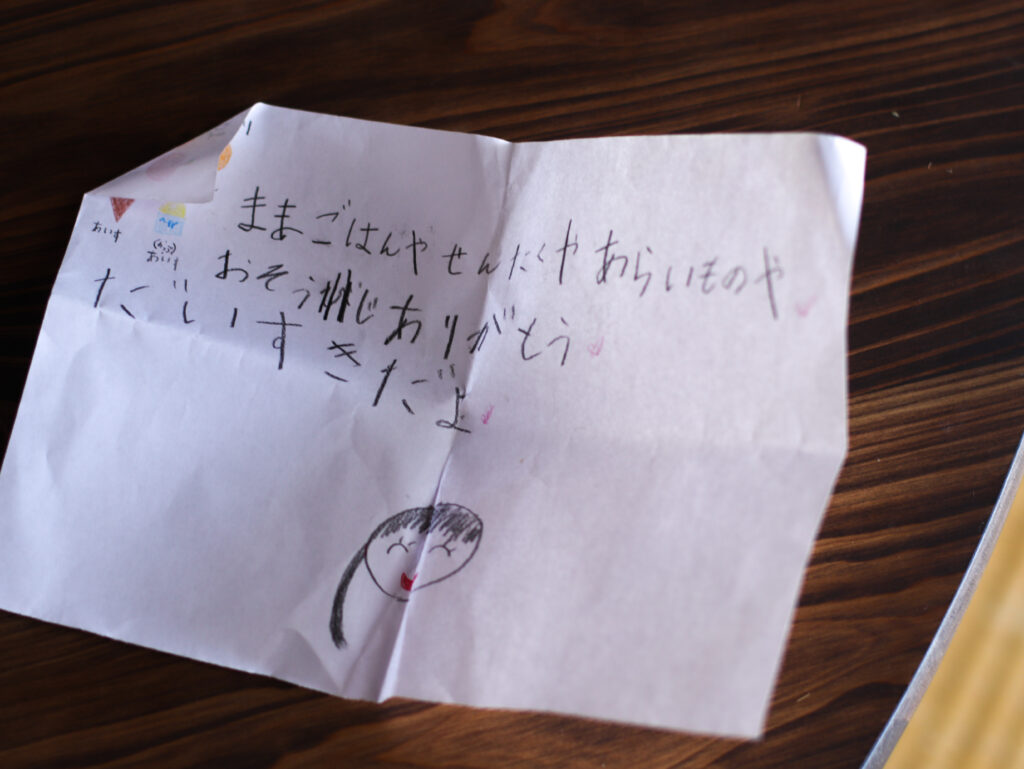 おいす
(かっぷ)
おいす
ままごはんやせんたくやあらいものや
おそうじありがとう
だいすきだよ